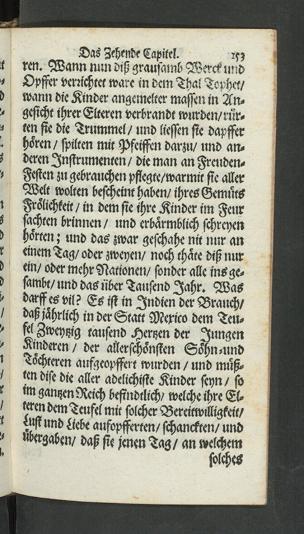 Das Zehende Capitel. 153
ren. Wann nun diß grausamb Werck und
Opffer verrichtet ware in dem Thal Tophet/
wann die Kinder angemelter massen in An-
gesicht ihrer Elteren verbrandt wurden/ rür-
ten sie die Trummel/ und liessen sie dapffer
hören/ spilten mit Pfeiffen darzu/ und an-
deren Instrumenten/ die man an Freuden-
Festen zu gebrauchen pflegte/ warmit sie aller
Welt wolten bescheint haben/ ihres Gemüts
Frölichkeit/ in dem sie ihre Kinder im Feur
sachten brinnen/ und erbärmblich schreyen
hörten; und das zwar geschahe nit nur an
einem Tag/ oder zweyen/ noch thäte diß nur
ein/ oder mehr Nationen/ sonder alle ins ge-
sambt/ und das über Tausend Jahr. Was
darff es vil? Es ist in Indien der Brauch/
daß jährlich in der Statt Mexico dem Teu-
fel Zweyzig tausend Hertzen der Jungen
Kinderen/ der allerschönsten Söhn- und
Töchteren auffgeopffert wurden/ und müß-
ten dise die aller adelichiste Kinder seyn/ so
im gantzen Reich befindlich/ welche ihre El-
teren dem Teufel mit solcher Bereitwilligkeit/
Lust und Liebe aufopfferten/ schanckten/ und
übergaben/ daß sie jenen Tag/ an welchem
solches